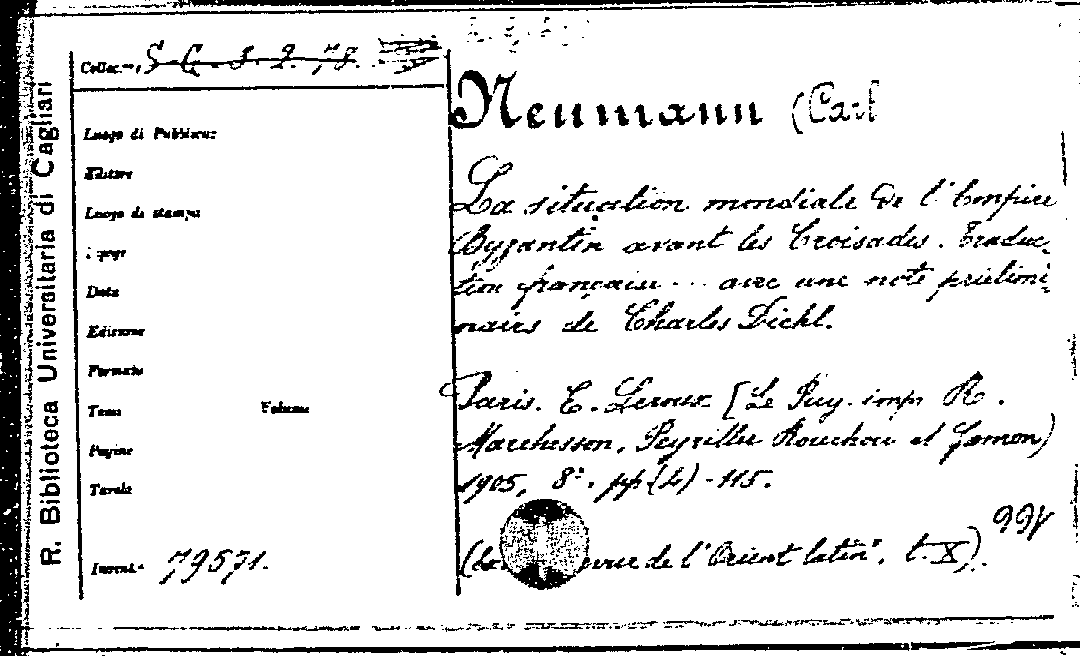 R. Biblioteca Universitaria di Cagliari
Colloc.ne S. C. 3. 2. 78.
Luogo di Pubblicaz
Editore
Luogo di stampa
Tipogr
Data
Edizione
Formato
Tomo Volume
Pagine
Tavole
Invent.° 79571.
Neumann (Carl
La situation mondiale de l'Empire
Byzantin avant les Croisades. Traduc-
tion française... avec une note prélimi-
naire de Charles Diehl.
Paris. E. Leroux [Le Puy. imp R.
Marchesson, Peyriller Rouchon et Gamon)
1905, 8°. pp (4) - 115.
de l'Orient latin", t. X).